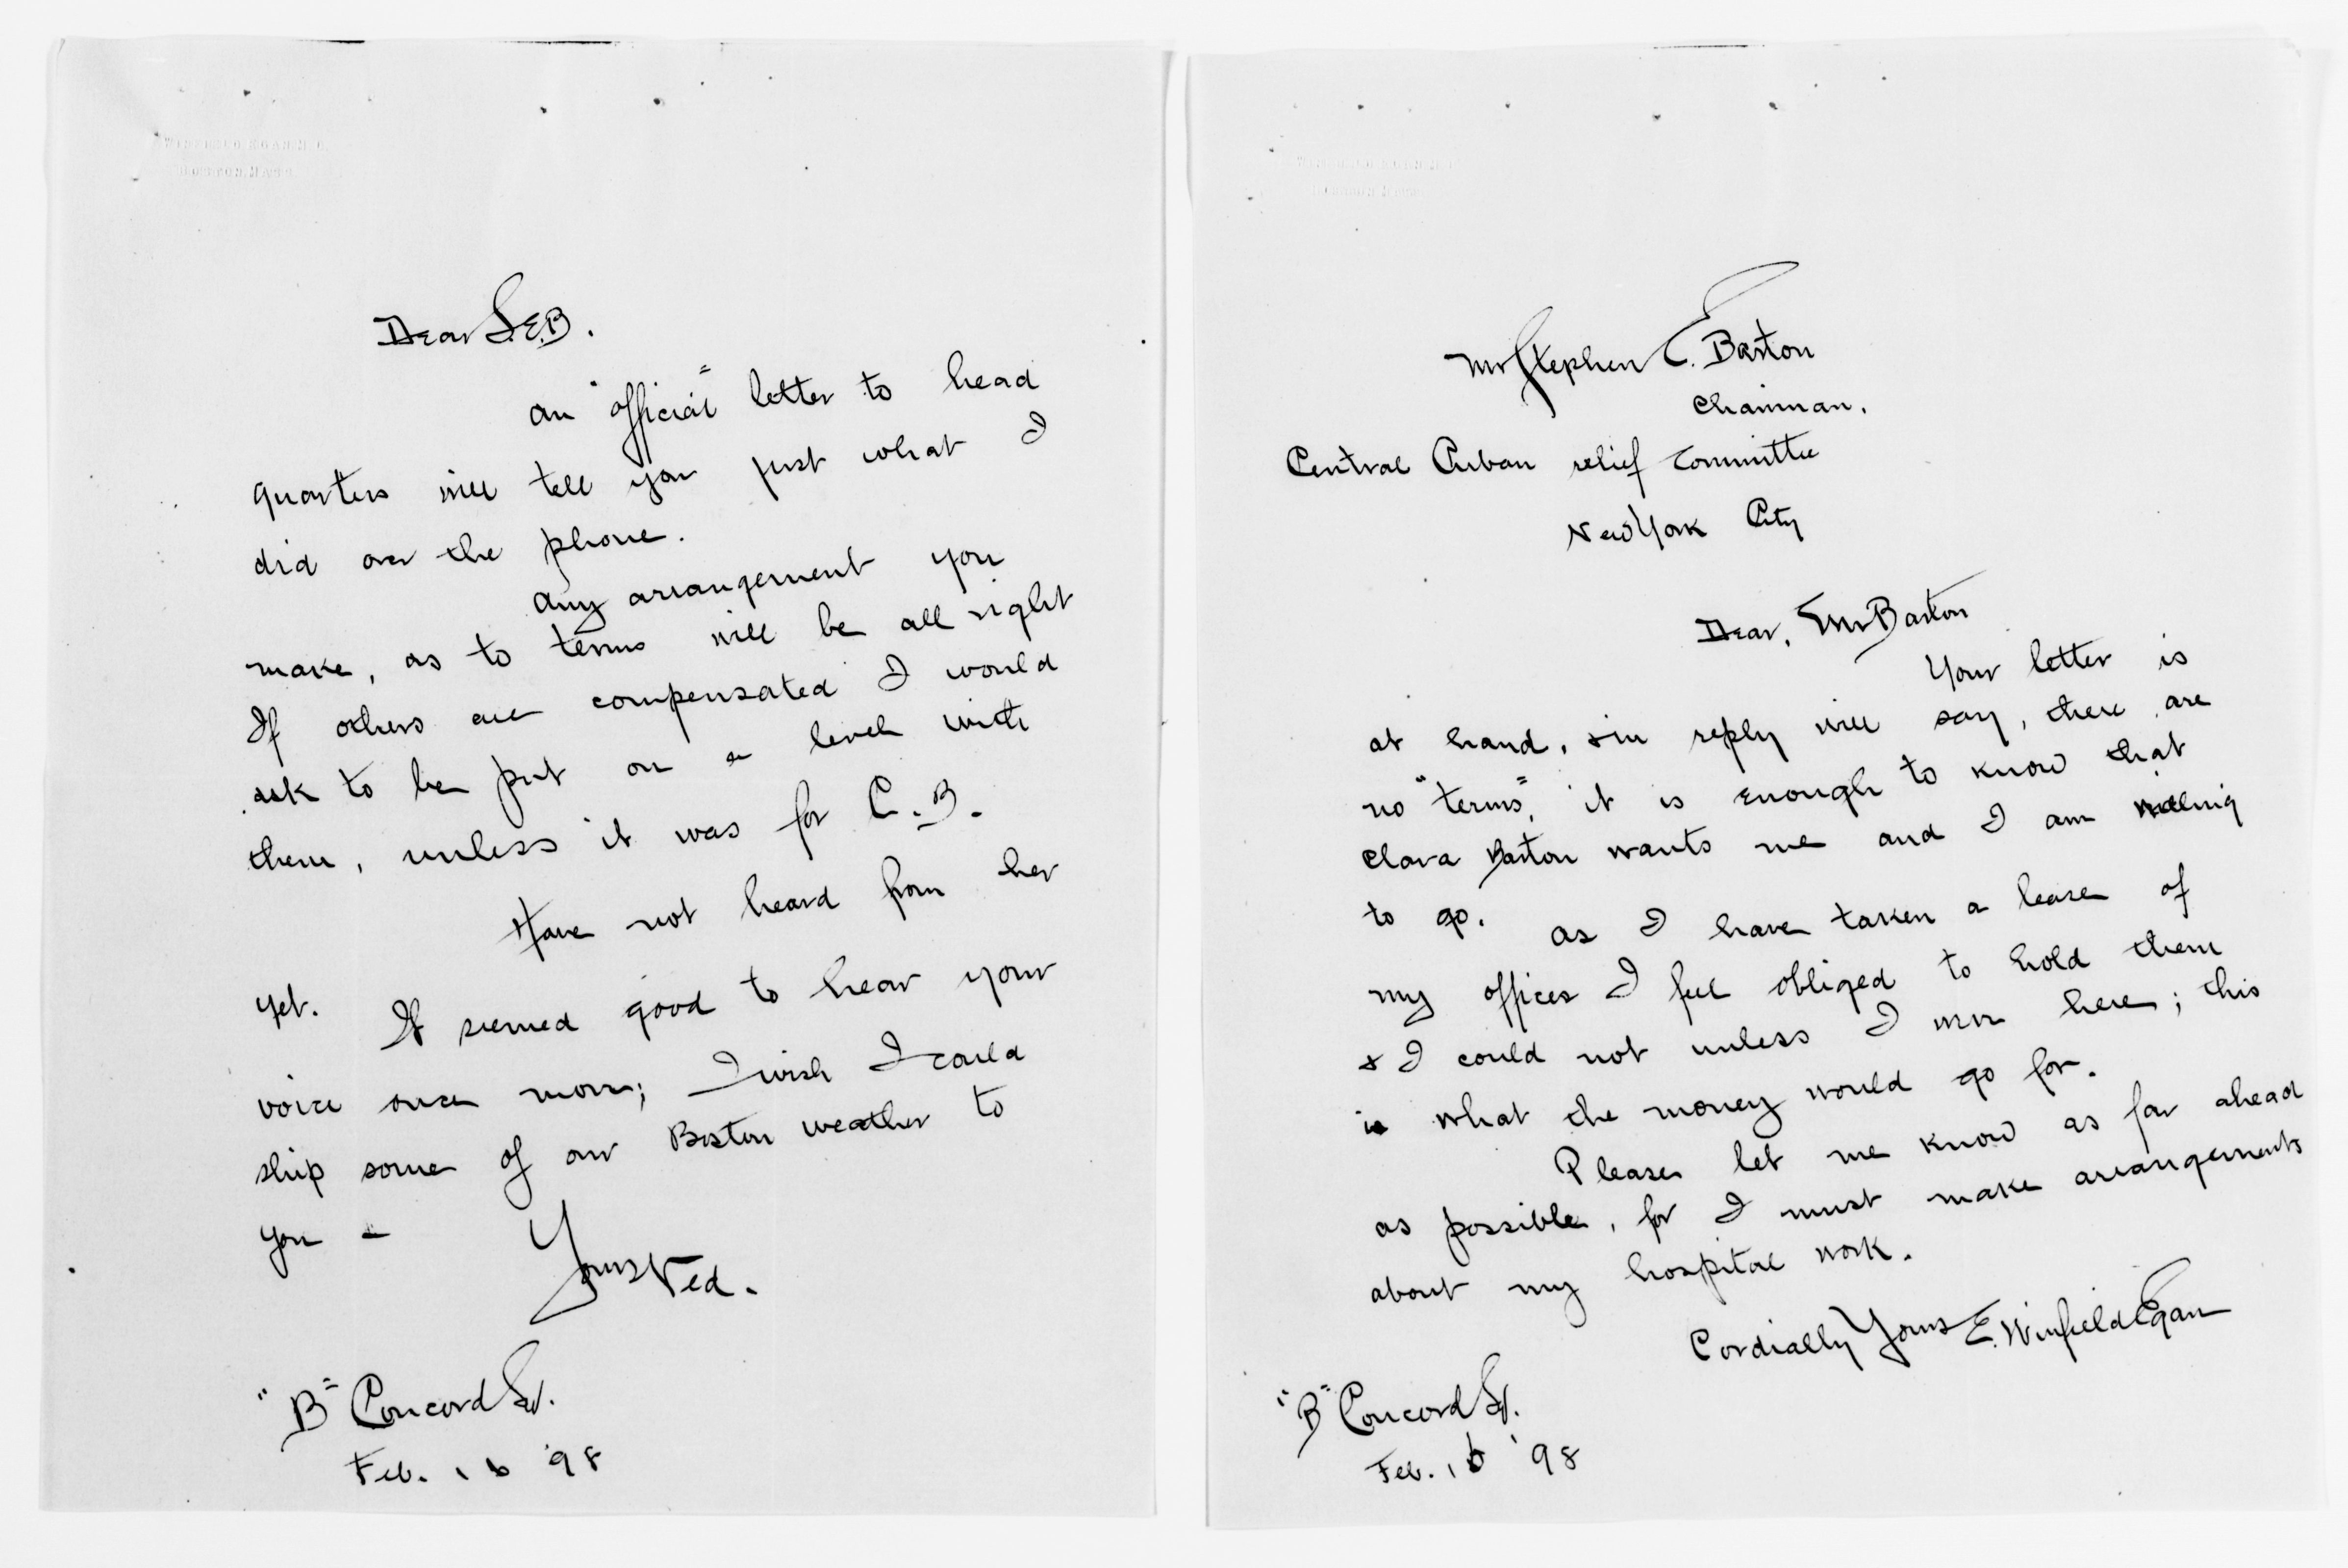 Winfield Egan M.D.
Boston, Mass.
Dear S.E.B.
An "official" letter to head
quarters will tell you just what I
did over the phone.
Any arrangement you
make, as to terms will be all right
If others are compensated I would
ask to be put on a level with
them, unless it was for C.B.
Have not heard from her
yet.
It seemed good to hear your
voice once more; I wish I could
ship some of our Boston weather to
you -
Yours Ned.
"B" Concord Sq.
Feb. 16 '98
Winfield Egan M.D.
Boston Mass
Mr Stephen E. Barton
Chairman.
Central Cuban relief Committee
New York City
Dear, Mr Barton
Your letter is
at hand, & in reply will say, there are
no "terms", it is enough to know that
Clara Barton wants me and I am willing
to go.
As I have taken a lease of
my offices I feel obliged to hold them
& I could not unless I were here; this
is what the money would go for.
Please let me know as far ahead
as possible, for I must make arrangements
about my hospital work.
Cordially Yours E. Winfield Egan
"B" Concord Sq.
Feb. 16 '98